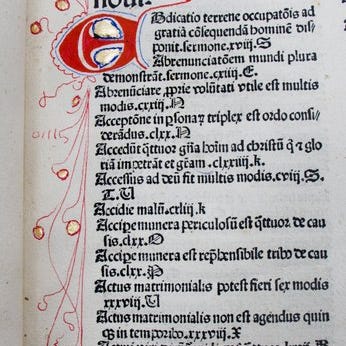 Abdicatio terrene occupatõis ad
gratiã cõsequendã hominẽ dis-
ponit.sermone.xviij.S
Abrenunciatõem mundi plura
demonstrãt.sermone.cxiij.E.
Abrenũciare ꝓprie volũtati vtile est multis
modis.cxxiij.N
Acceptõne in ꝑsonaꝝ triplex est ordo consi-
derãdus.clxx.N
Accedũt q̃ttuor gña hoĩm ad christũ q̃ & glo
riã imꝑtrãt et gr̃am.clxxiiij.k.
Accessus ad deũ fit multis modis.cviij.S.
T.U
Accidie malũ.cxliij.k
Accipe munera periculosũ est q̃ttuor de cau
sis.clxx.O
Accipe munera est rep̃hensibile tribꝰ de cau
sis.clxx.P
Actus matrimonialis potest fieri sex modis
xxxviij.U
Actus matrimonialis non est agendus quin
qꝫ in temporibꝰ.xxxviij.X